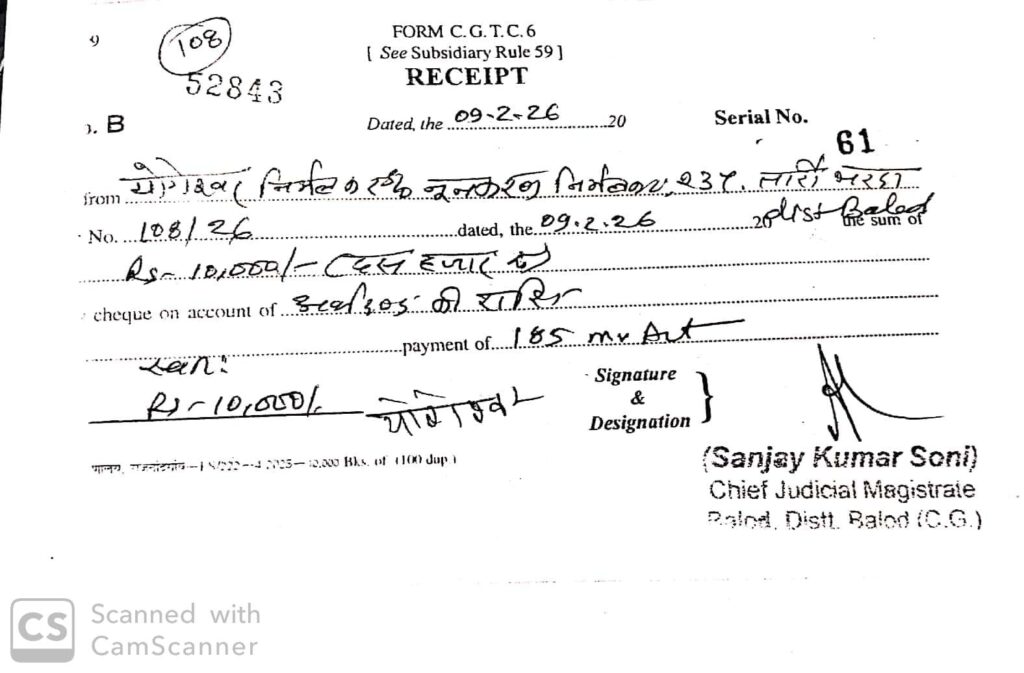 108
FORM C.G.T.C.6
[ See Subsidiary Rule 59 ]
52843
RECEIPT
). B
Dated, the 09-2-26 20
Serial No.
61
from योगेश्वर निर्मलकर S/o नूनकरण निर्मलकर, 23Y.
No. 108/26 dated, the 09.2.26 20 dist Balod the sum of
Rs- 10,000/- (दस हजार रू)
cheque on account of की राशि
payment of 185 mv Act
Rs - 10,000/-
योगेश्वर
Signature
&
Designation
(Sanjay Kumar Soni)
Chief Judicial Magistrate
Balod, Distt. Balod (C.G.)
10,000 Bks. of (100 dup.)
CS
Scanned with
CamScanner